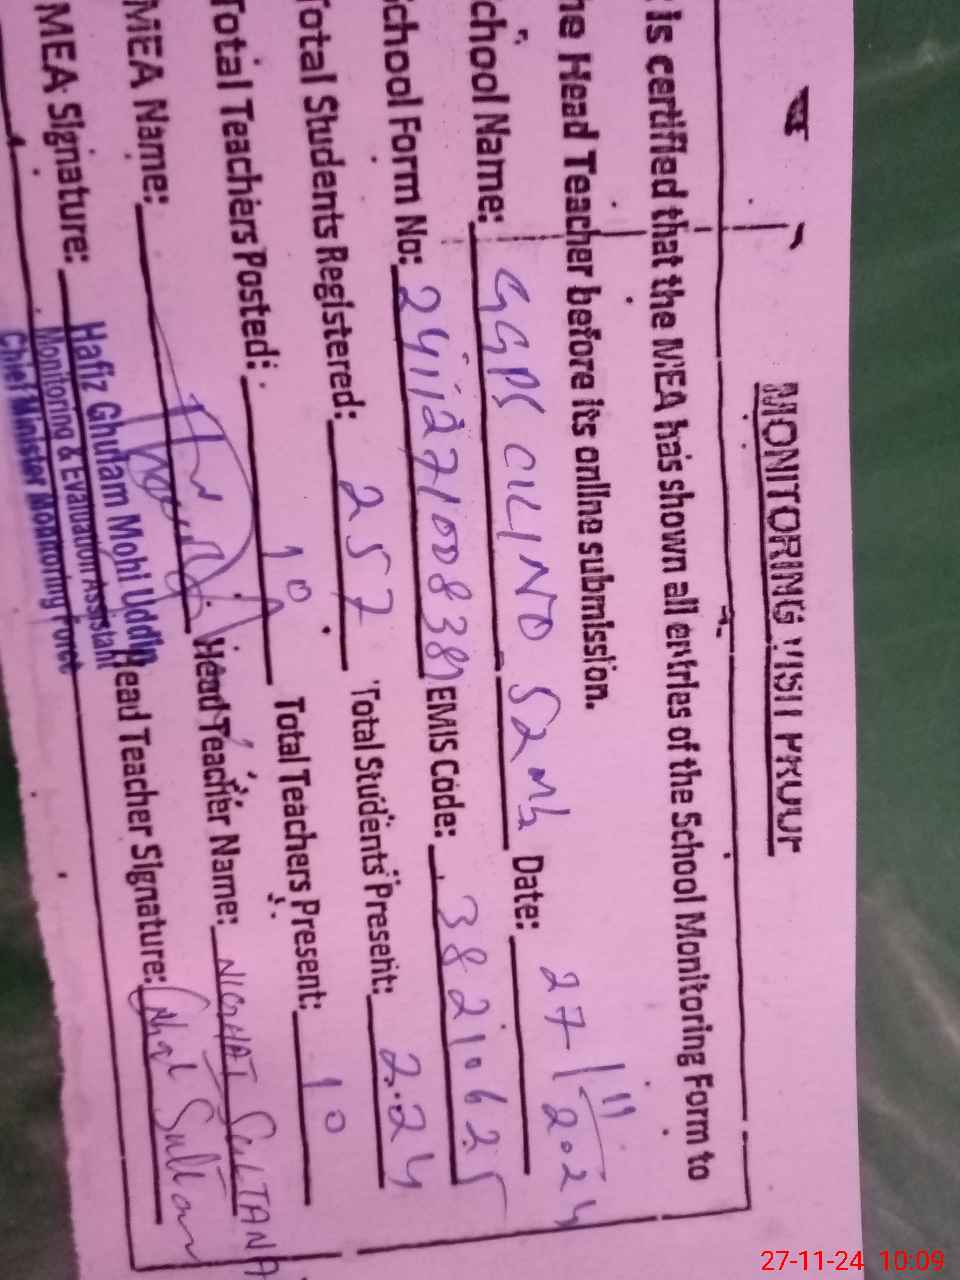 MONITORING VISIT PROOF
t is certified that the MEA has shown all entries of the School Monitoring Form to
he Head Teacher before its online submission.
chool Name: GGPS CILIND 52 Mb Date: 27/11/2024
chool Form No: EMIS Code: 38210625
Total Students Registered: 257 Total Students Present: 224
Total Teachers Posted: 10 Total Teachers Present: 10
MEA Name: Head Teacher Name: NIGHAT SULTANA
MEA Signature: Head Teacher Signature: Sultan
Hafiz Ghulam Mohi Uddin
Monitoring & Evaluation Assistant
Chief Minister Monitoring Force
27-11-24 10:09